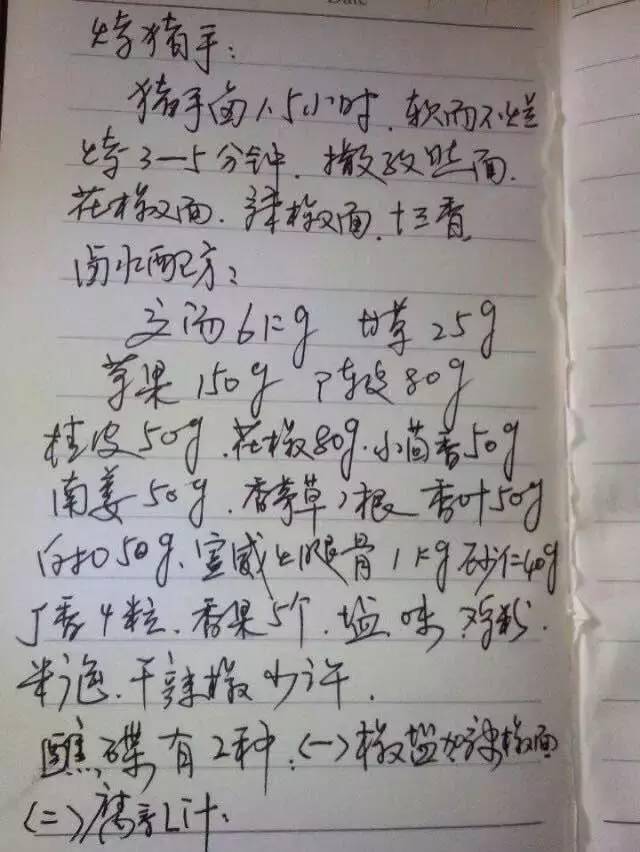 烤猪手：
猪手卤1.5小时、软而不烂
烤3一5分钟、撒孜然面、
花椒面、辣椒面、十三香
卤水配方：
高汤6kg 甘草25g
草果150g 陈皮80g
桂皮50g、花椒80g、小茴香50g
南姜50g、香茅草1根 香叶50g
白扣50g、宣威火腿骨1kg 砂仁40g
丁香4粒、香果5个、盐、味、鸡粉、
半勺、干辣椒少许、
蘸碟有2种：(一)椒盐加辣椒面
(二)腐乳汁、